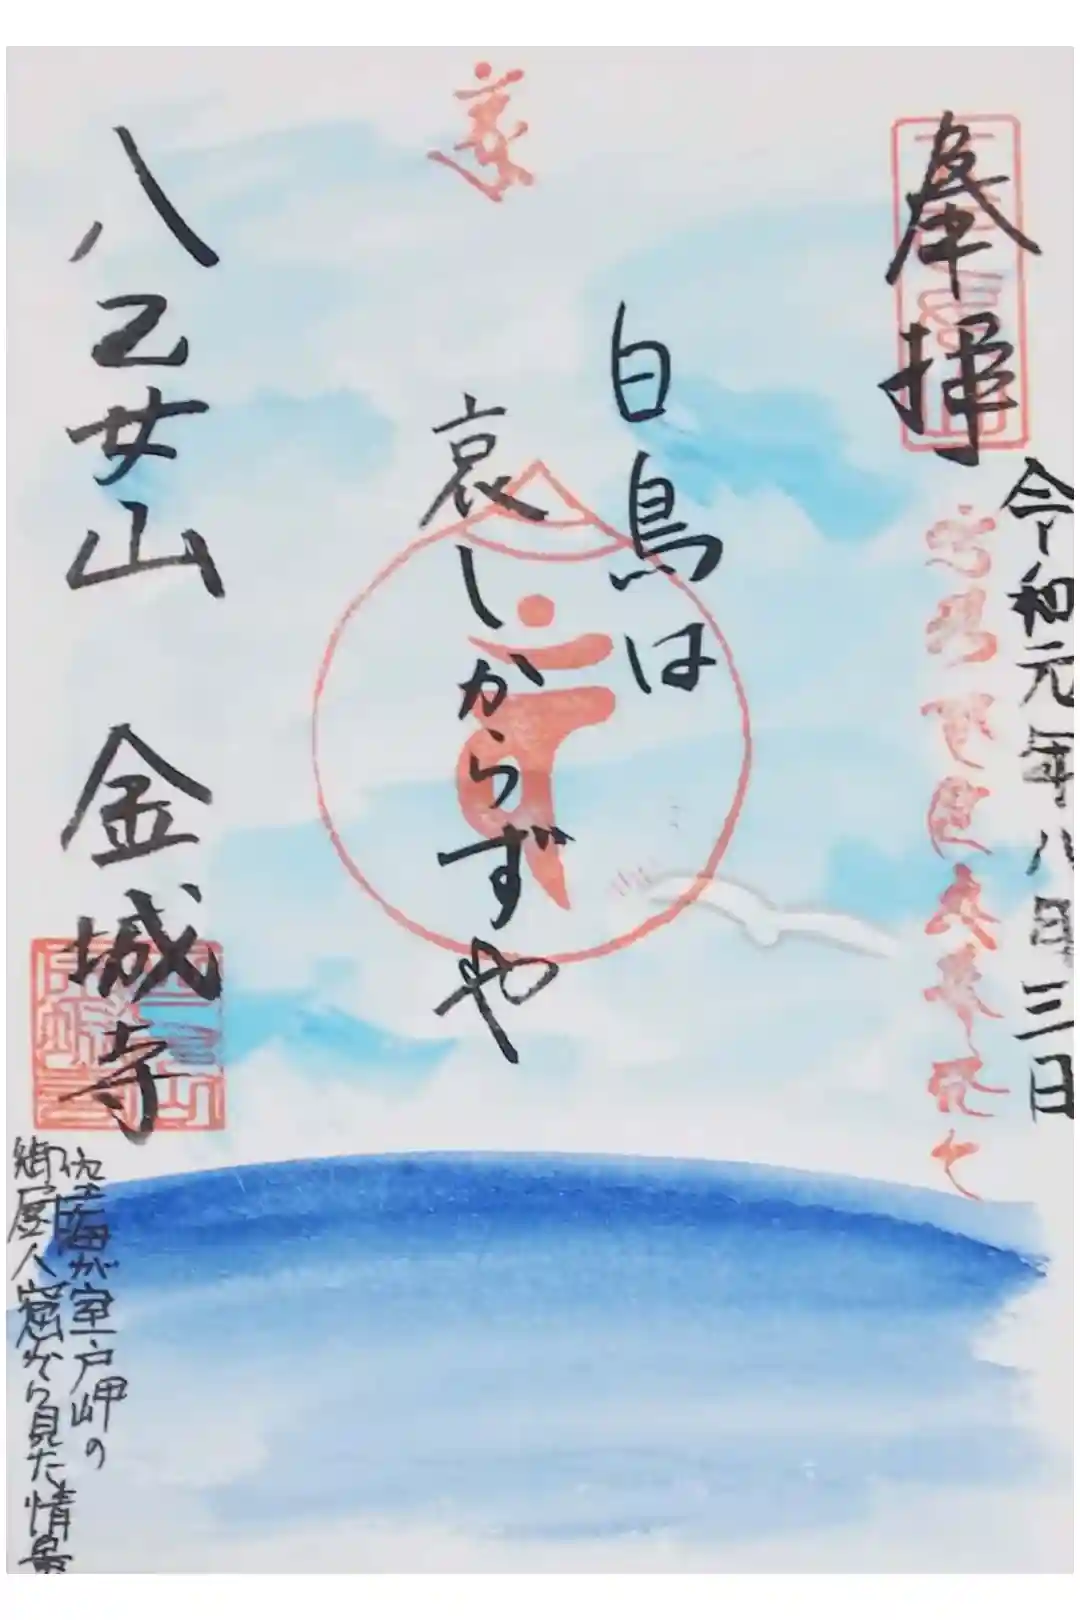 奉拝
令和元年八月三日
白鳥は
哀しからずや
八乙女山 金城寺
佐空海が室戸岬の
御厨人窟から見た情景